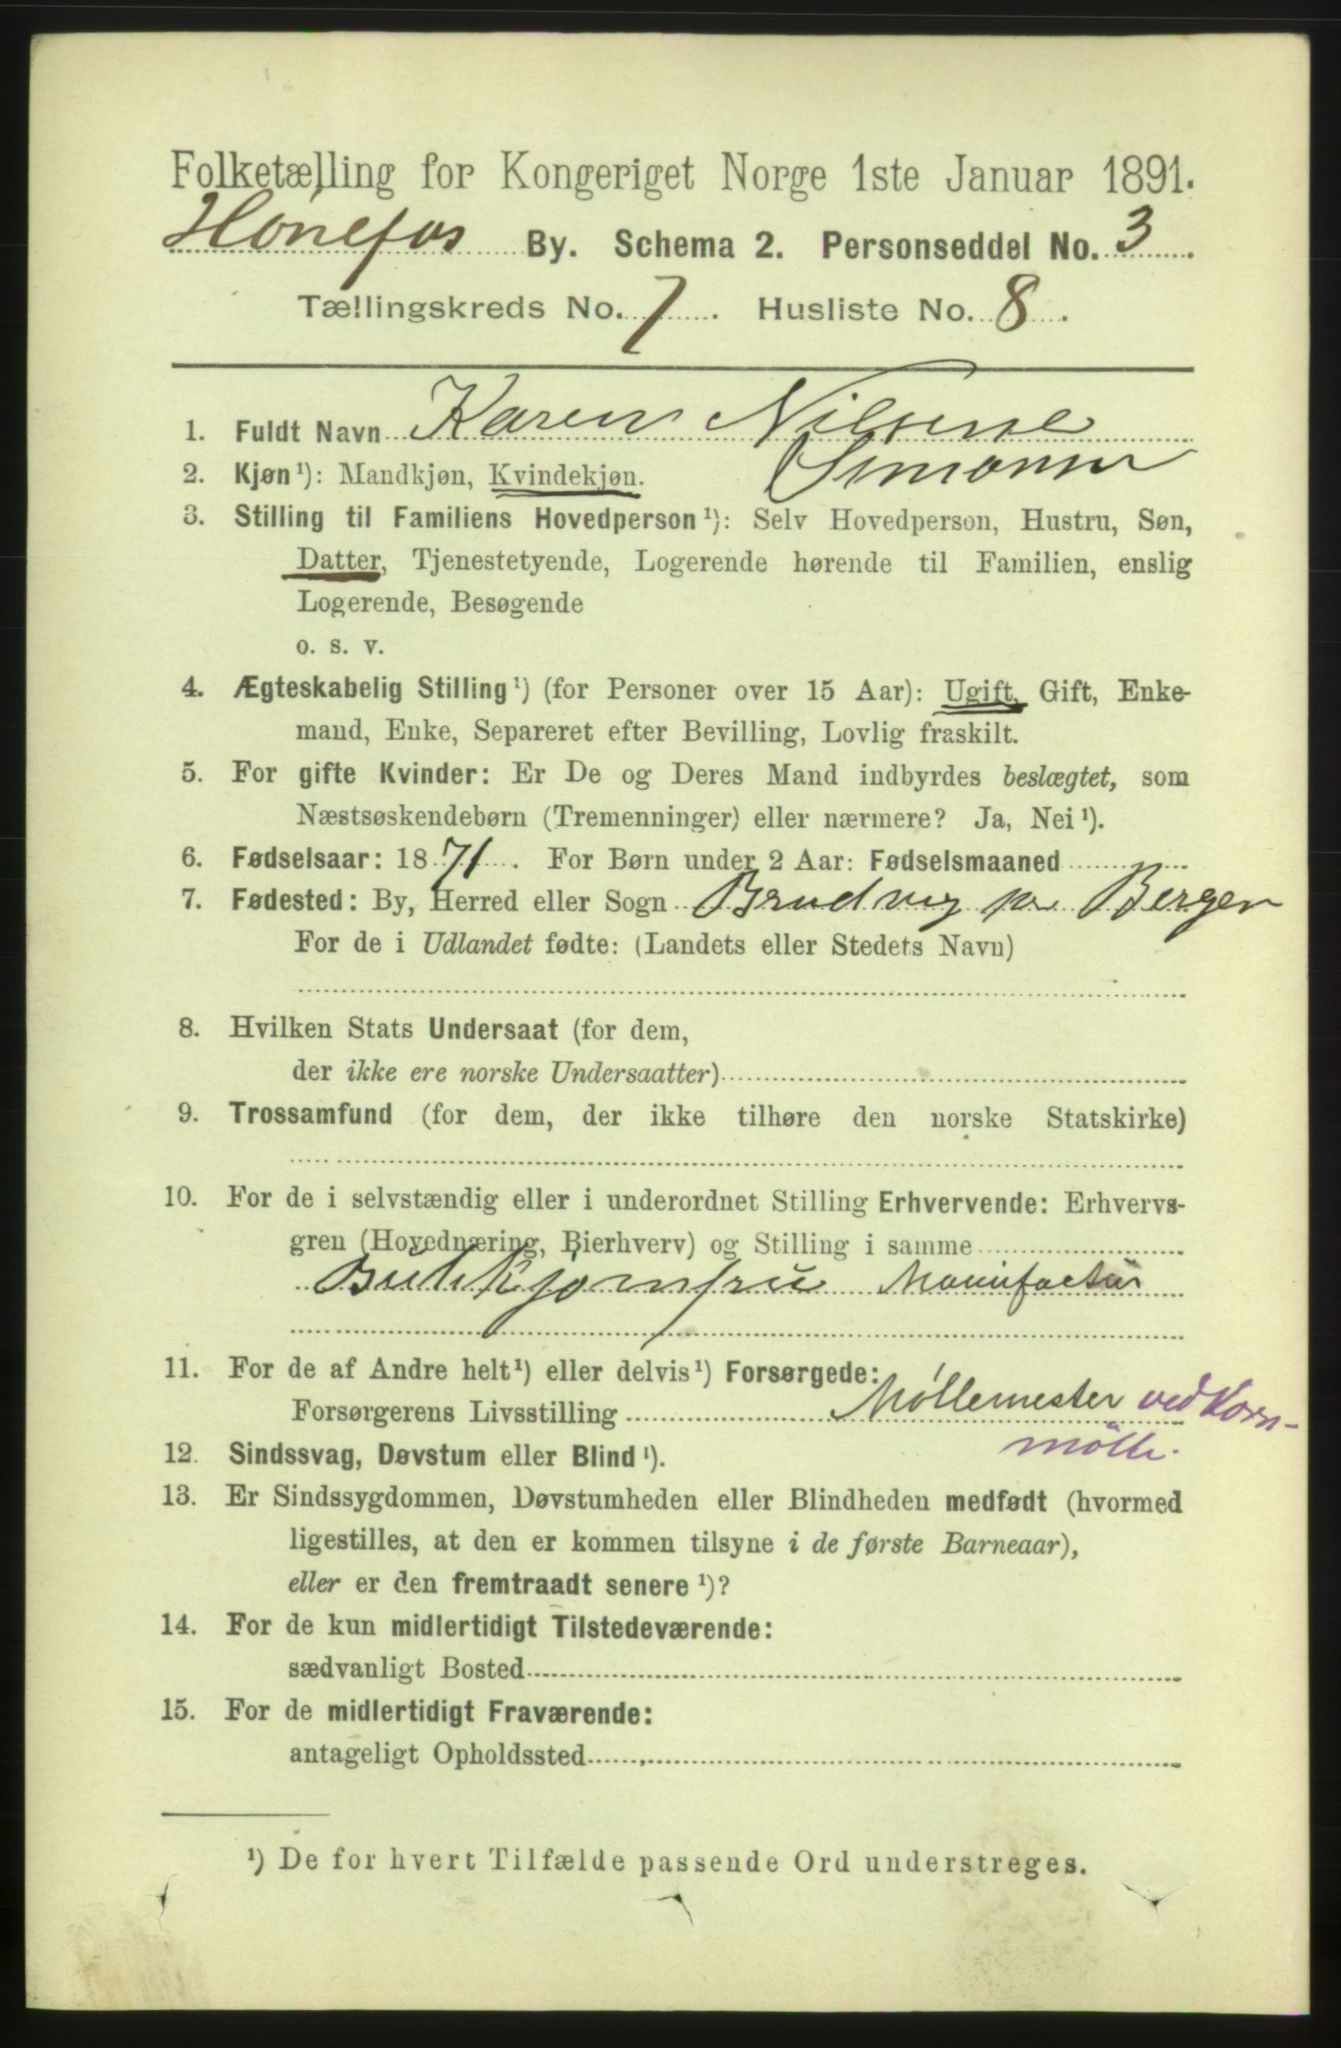 Folketælling for Kongeriget Norge 1ste Januar 1891.
Hönefos By. Schema 2. Personseddel No. 3
Tællingskreds No. 7. Husliste No. 8.
1. Fuldt Navn Karen Nilsine
Simonsen
2. Kjøn ¹): Mandkjøn, Kvindekjøn.
3. Stilling til Familiens Hovedperson ¹): Selv Hovedperson, Hustru, Søn,
Datter, Tjenestetyende, Logerende hørende til Familien, enslig
Logerende, Besøgende
o. s. v.
4. Ægteskabelig Stilling ¹) (for Personer over 15 Aar): Ugift, Gift, Enke-
mand, Enke, Separeret efter Bevilling, Lovlig fraskilt.
5. For gifte Kvinder: Er De og Deres Mand indbyrdes beslægtet, som
Næstsøskendebørn (Tremenninger) eller nærmere? Ja, Nei ¹).
6. Fødselsaar: 1871. For Børn under 2 Aar: Fødselsmaaned
7. Fødested: By, Herred eller Sogn Brudvig pr Bergen
For de i Udlandet fødte: (Landets eller Stedets Navn)
8. Hvilken Stats Undersaat (for dem,
der ikke ere norske Undersaatter)
9. Trossamfund (for dem, der ikke tilhøre den norske Statskirke)
10. For de i selvstændig eller i underordnet Stilling Erhvervende: Erhvervs-
gren (Hovednæring, Bierhverv) og Stilling i samme
Butikjomfru Manufactur
11. For de af Andre helt ¹) eller delvis ¹) Forsørgede:
Forsørgerens Livsstilling Möllemester ved Korn-
mölle.
12. Sindssvag, Døvstum eller Blind ¹).
13. Er Sindssygdommen, Døvstumheden eller Blindheden medfødt (hvormed
ligestilles, at den er kommen tilsyne i de første Barneaar),
eller er den fremtraadt senere ¹)?
14. For de kun midlertidigt Tilstedeværende:
sædvanligt Bosted
15. For de midlertidigt Fraværende:
antageligt Opholdssted
¹) De for hvert Tilfælde passende Ord understreges.